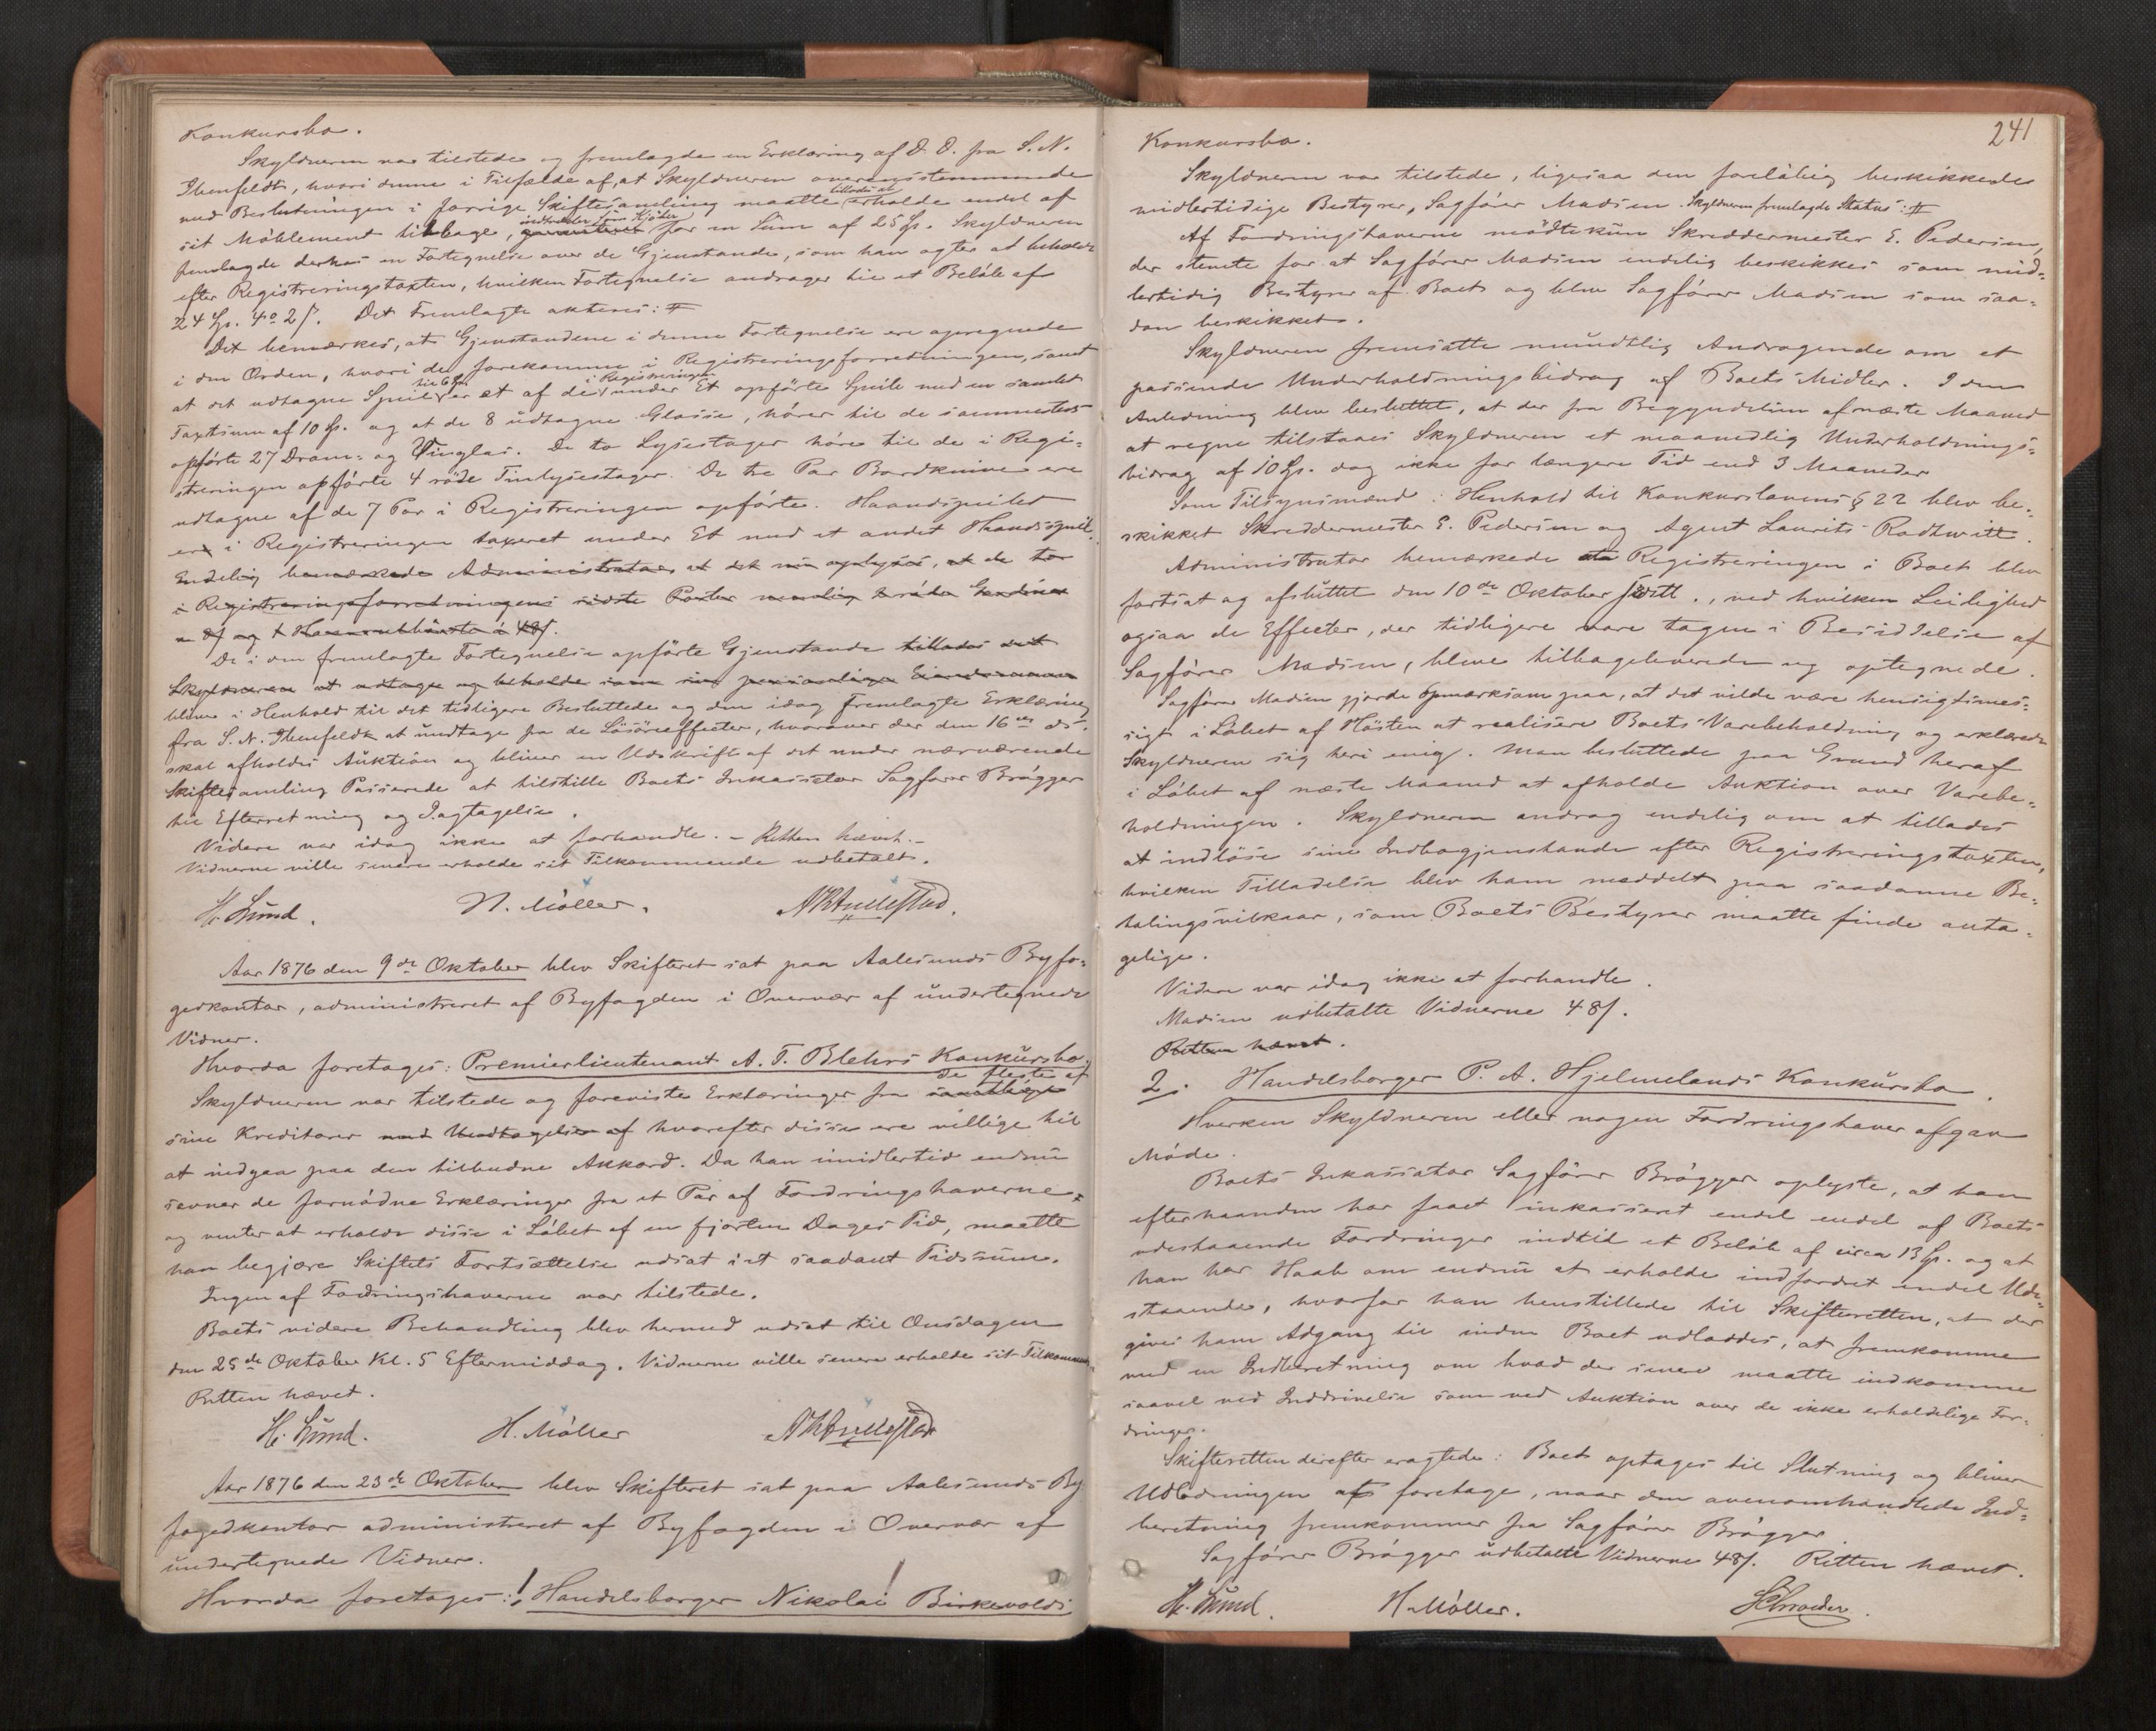 Konkursbo.
Skyldneren var tilstede og fremlagde en Erklæring af D. D. fra S. N.
Ibenfeldt, hvori denne i Tilfælde af, at Skyldneren overensstemmende
med Beslutningen i forrige Skiftesamling maatte tillades at erholde endel af
sit Möblement tilbage, indtræder som Kjöber for en Sum af 25 Sp. Skyldneren
fremlagde derhos en Fortegnelse over de Gjenstande, som han agter at beholde
efter Registreringstaxten, hvilken Fortegnelse andrager til et Beløb af
24 Sp. 4 o 2 s. Det Fremlagte akteres: #
Det bemærkes, at Gjenstandene i denne Fortegnelse ere opregnede
i den Orden, hvori de forekomme i Registreringsforretningen, samt
at det udtagne Speil til 6 Sp. er et af de i Registreringen under Et opførte Speile med en samlet
Taxtsum af 10 Sp. og at de 8 udtagne Glasse, hörer til de sammesteds
opførte 27 Dram- og Vinglas. De to Lysestager høre til de i Regi-
streringen opførte 4 röde Tinlysestager. De tre Par Bordknive ere
udtagne af de 7 Par i Registreringen opførte. Haandspeilet
er i Registreringen taxeret under Et med et andet Haandspeil.
Endelig bemærkede Administrator at det nu oplystes, at de to
i Registreringsforretningens sidste Poster nemlig 2 röde Gardiner
De i den fremlagte Fortegnelse opførte Gjenstande tillades det
Skyldneren at udtage og beholde som sin personlige Eiendom
blive i Henhold til det tidligere Besluttede og den idag fremlagte Erklæring
fra S. N. Ibenfeldt at undtage fra de Lösöreeffecter, hvorover der den 16de ds.
skal afholdes Auktion og bliver en Udskrift af det under nærværende
Skiftesamling Passerede at tilstille Boets Inkassator Sagförer Brögger
til Efterretning og Iagtagelse.
Videre var idag ikke at forhandle. – Retten hævet. –
Vidnerne ville senere erholde sit Tilkommende udbetalt.
H. Lund. H. Möller.
Aar 1876 den 9de Oktober blev Skifteret sat paa Aalesunds Byfo-
gedkontor, administreret af Byfogden i Overvær af undertegnede
Vidner.
Hvorda foretages: Premierlieutenant A. T. Blehrs Konkursbo.
Skyldneren var tilstede og foreviste Erklæringer fra samtlige de fleste af
sine Kreditorer med Undtagelse af hvorefter disse ere villige til
at indgaa paa den tilbudne Akkord. Da han imidlertid endnu
savner de fornødne Erklæringer fra et Par af Fordringshaverne
og venter at erholde disse i Löbet af en fjorten Dages Tid, maatte
han begjære Skiftets Fortsættelse udsat i et saadant Tidsrum.
Ingen af Fordringshaverne var tilstede.
Boets videre Behandling blev hermed udsat til Onsdagen
den 25de Oktober Kl. 5 Eftermiddag. Vidnerne ville senere erholde sit Tilkommende.
Retten hævet.
H. Lund. H. Möller
Aar 1876 den 23de Oktober blev Skifteret sat paa Aalesunds By
fogedkontor administreret af Byfogden i Overvær af
undertegnede Vidner.
Hvorda foretages: 1, Handelsborger Nikolai Birkevolds
241
Konkursbo.
Skyldneren var tilstede, ligesaa den foreløbig beskikkede
midlertidige Bestyrer, Sagförer Madsen. Skyldneren fremlagde Status: #
Af Fordringshaverne mödte kun Skreddermester E. Pedersen,
der stemte for at Sagförer Madsen endelig beskikkes som mid-
lertidig Bestyrer af Boet og blev Sagförer Madsen som saa-
dan beskikket.
Skyldneren fremsatte mundtlig Andragende om et
passende Underholdningsbidrag af Boets Midler. I den
Anledning blev besluttet, at der fra Begyndelsen af næste Maaned
at regne tilstaaes Skyldneren et maanedlig Underholdnings-
bidrag af 10 Sp. dog ikke for længere Tid end 3 Maaneder
Som Tilsynsmænd i Henhold til Konkurslovens § 22 blev be-
skikket Skreddermester E. Pedersen og Agent Laurits Rodtwitt.
Administrator bemærkede at Registreringen i Boet blev
fortsat og afsluttet den 10de Oktober sidstl., ved hvilken Leilighed
ogsaa de Effecter, der tidligere vare tagne i Besiddelse af
Sagförer Madsen, bleve tilbageleverede og optegnede.
Sagförer Madsen gjorde opmærksom paa, at det vilde være hensigtsmes-
sigt i Löbet af Hösten at realisere Boets Varebeholdning og erklærede
Skyldneren sig heri enig. Man besluttede paa Grund heraf
i Löbet af næste Maaned at afholde Auktion over Varebe-
holdningen. Skyldneren androg endelig om at tillades
at indlöse sine Indbogjenstande efter Registreringstaxten,
hvilken Tilladelse blev ham meddelt paa saadanne Be-
talingsvilkaar, som Boets Bestyrer maatte finde anta-
gelige.
Videre var idag ikke at forhandle.
Madsen udbetalte Vidnerne 48 s.
Retten hævet.
2. Handelsborger P. A. Hjelmelands Konkursbo.
Hverken Skyldneren eller nogen Fordringshaver afgav
Möde.
Boets Inkassator Sagförer Brögger oplyste, at han
efterhaanden har faaet inkasseret endel endel af Boets
udestaaende Fordringer indtil et Beløb af circa 13 Sp. og at
han har Haab om endnu at erholde indfordret endel Ude-
staaende, hvorfor han henstillede til Skifteretten, at der
gives ham Adgang til inden Boet udloddes, at fremkomme
med en Indberetning om hvad der senere maatte indkomme
saavel ved Inddrivelse som ved Auktion over de ikke erholdelige For-
dringer.
Skifteretten derefter eragtede: Boet optages til Slutning og bliver
Udlodningen at foretage, naar den ovenomhandlede Ind-
beretning fremkommer fra Sagförer Brögger
Sagförer Brögger udbetalte Vidnerne 48 s. Retten hævet.
H. Lund. H. Möller. Schroeder.